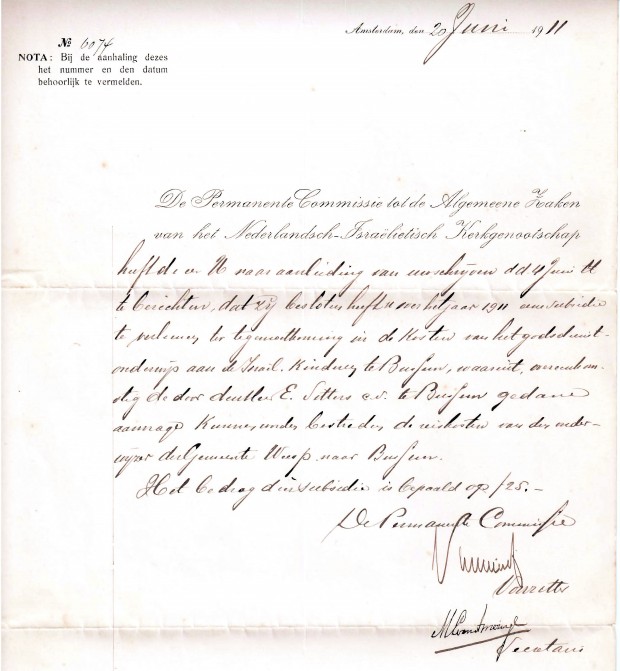 Amsterdam, den 20 Juni 1911
№ 6074
NOTA: Bij de aanhaling dezes
het nummer en den datum
behoorlijk te vermelden.
De Permanente Commissie tot de Algemeene Zaken
van het Nederlandsch-Israëlietisch Kerkgenootschap
heeft de eer U naar aanleiding van uw schrijven dd 4 Juni ll
te berichten, dat zij besloten heeft U voor het jaar 1911 een subsidie
te verleenen ter tegemoetkoming in de kosten van het godsdienst-
onderwijs aan de Israël. Kinderen te Bussum, waaruit, overeenkom-
stig de door den Heer E. Setters c.s. te Bussum gedane
aanvrage kunnen worden bestreden de reiskosten van den onder-
wijzer der Gemeente Weesp naar Bussum.
Het bedrag dier subsidie is bepaald op f25.-
De Permanente Commissie
Voorzitter
Secretaris